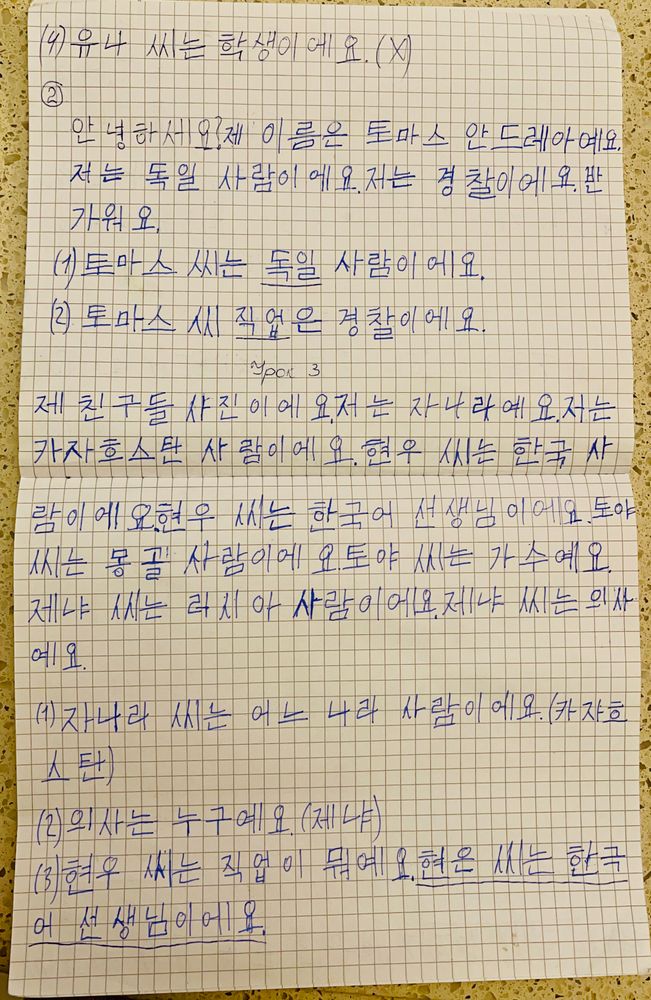 (4) 유나 씨는 학생이에요. (X)
②
안녕하세요? 제 이름은 토마스 안드레아예요.
저는 독일 사람이에요. 저는 경찰이에요. 반
가워요.
(1) 토마스 씨는 독일 사람이에요.
(2) 토마스 씨 직업은 경찰이에요.
Урок 3
제 친구들 사진이에요. 저는 자나라예요. 저는
카자흐스탄 사람이에요. 현우 씨는 한국 사
람이에요. 현우 씨는 한국어 선생님이에요. 토야
씨는 몽골 사람이에요. 토야 씨는 가수예요.
제냐 씨는 러시아 사람이에요. 제냐 씨는 의사
예요.
(1) 자나라 씨는 어느 나라 사람이에요. (카자흐
스탄)
(2) 의사는 누구예요. (제냐)
(3) 현우 씨는 직업이 뭐예요. 현은 씨는 한국
어 선생님이에요.